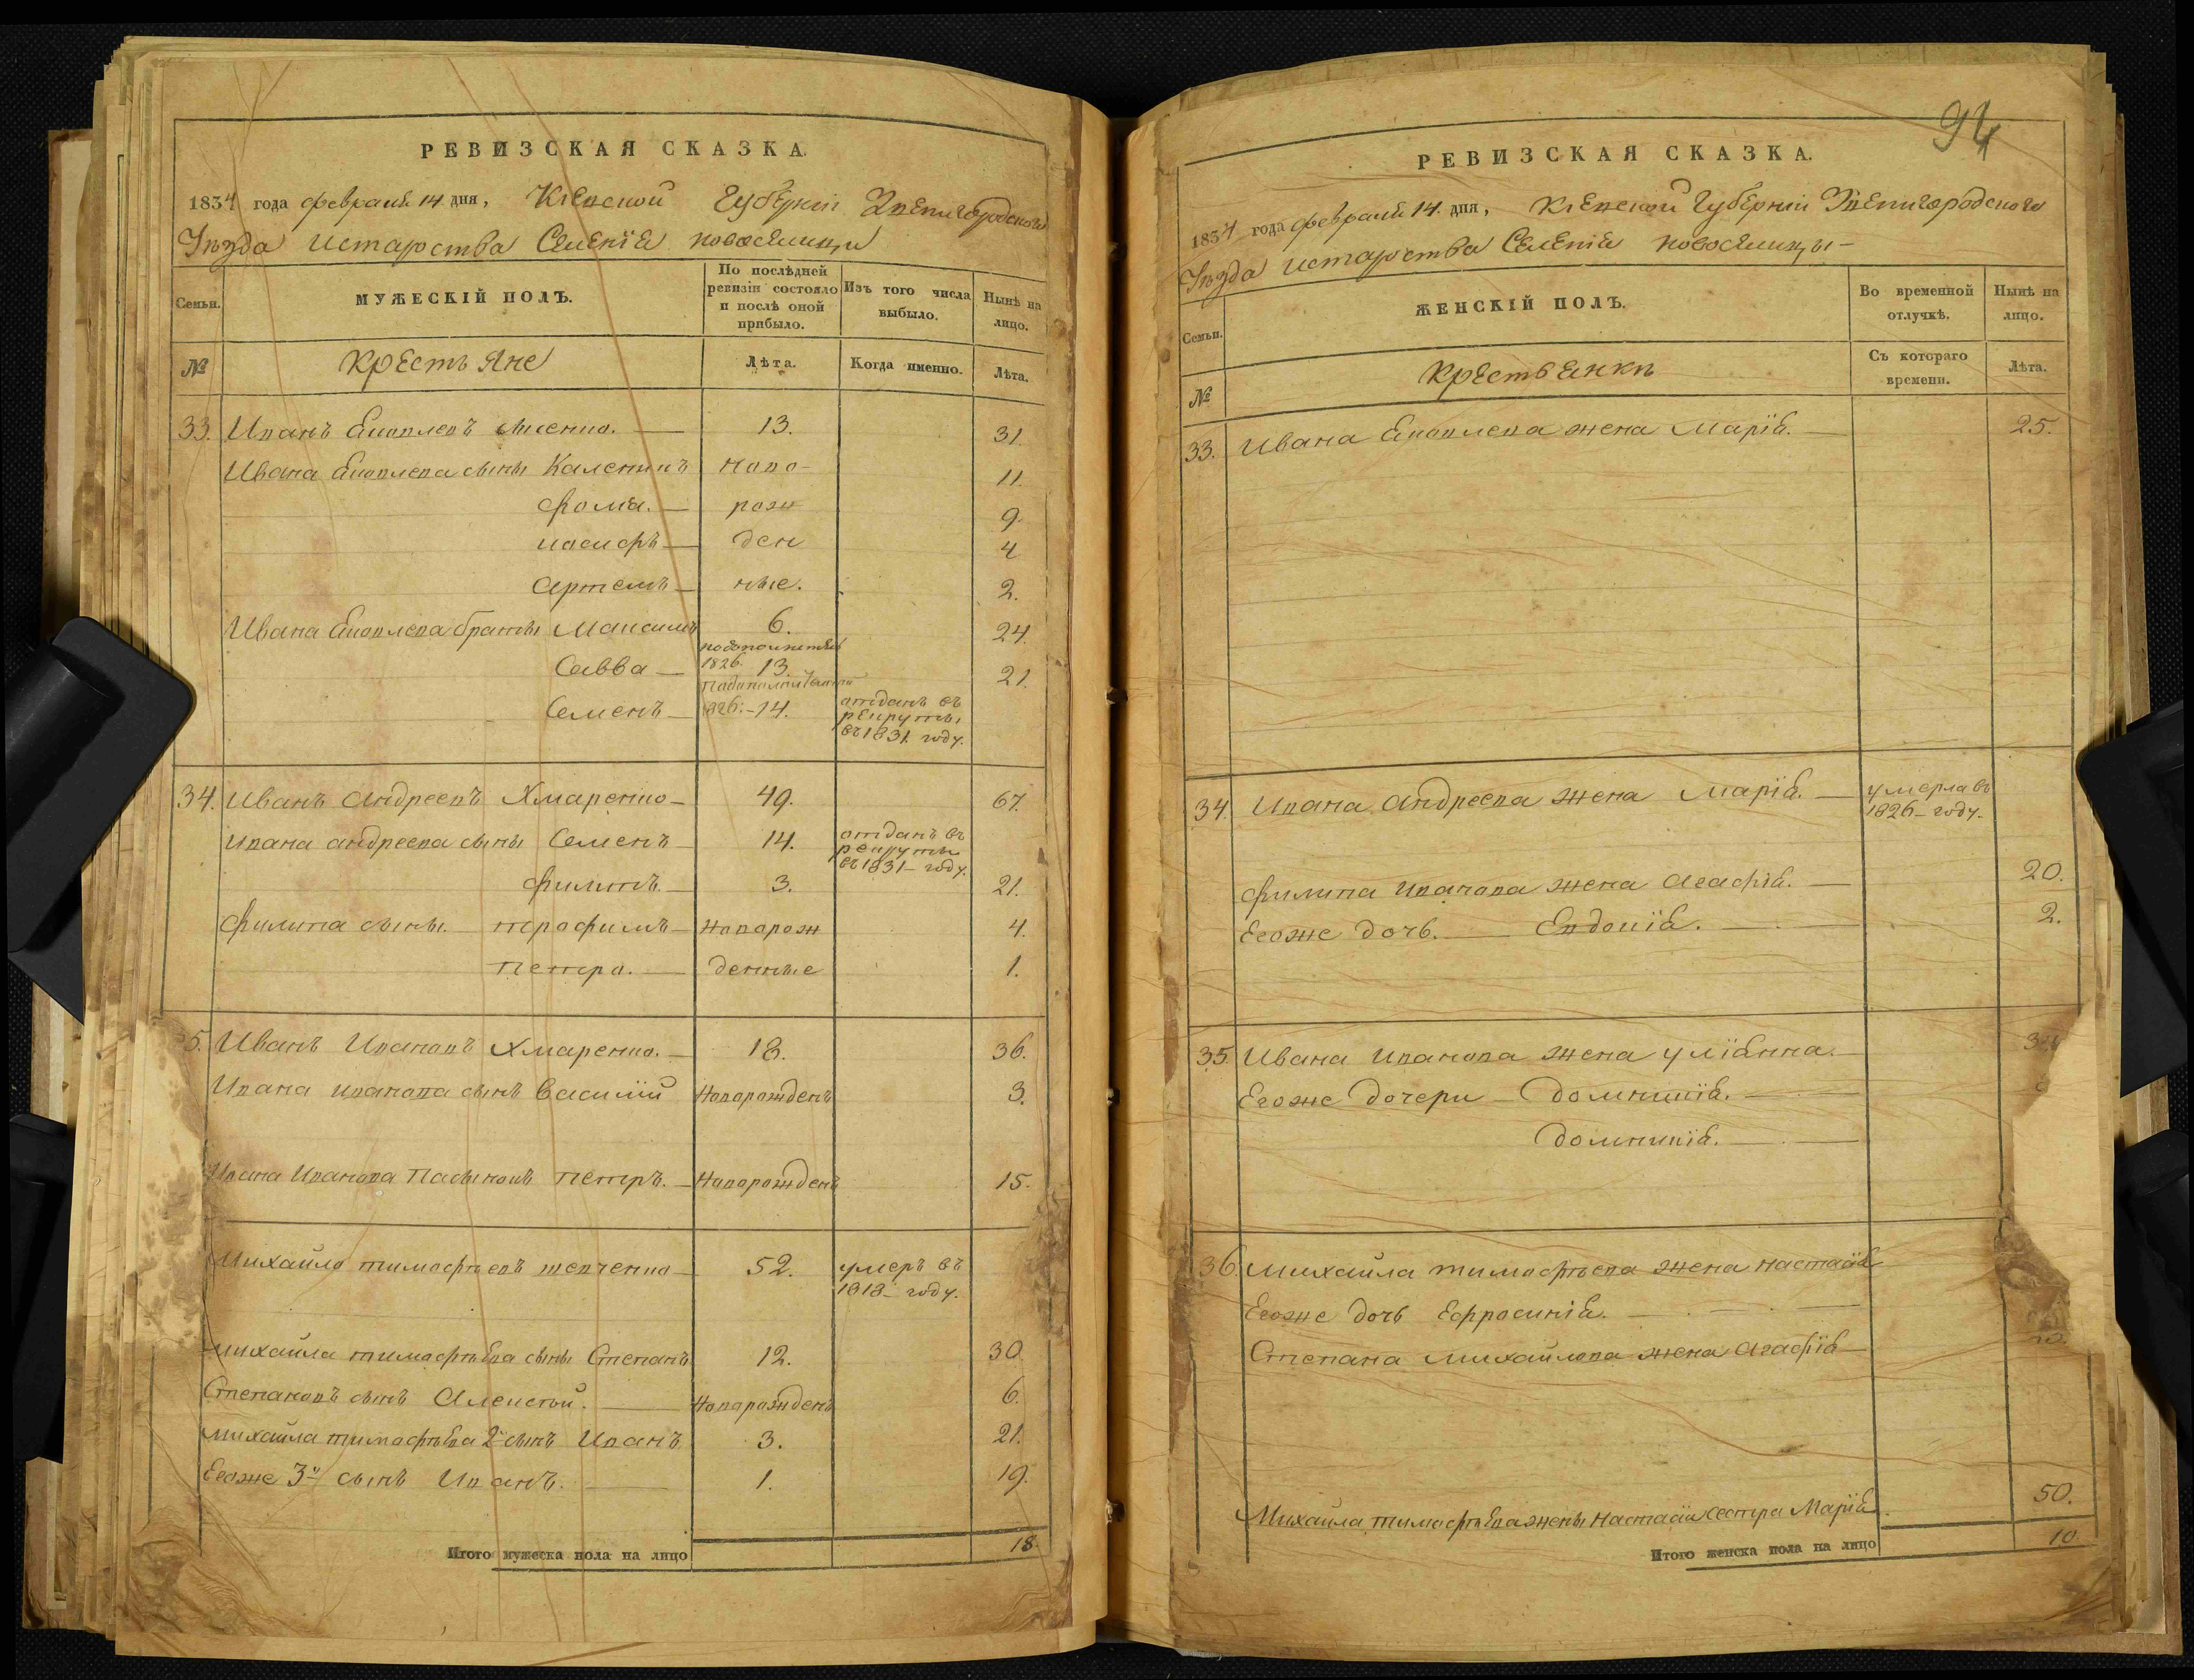 РЕВИЗСКАЯ СКАЗКА.
1834 года февраля 14 дня, Кіевской Губерніи Звенигородского
Уѣзда Истароства Селенія новоселицы
Семьи.
МУЖЕСКІЙ ПОЛЪ.
По послѣдней ревизіи состояло и послѣ оной прибыло.
Изъ того числа выбыло.
Нынѣ на лицо.
№
Крестьяне
Лѣта.
Когда именно.
Лѣта.
33. Иванъ Яковлевъ 13. 31.
Ивана Яковлева сыны Каленикъ ново- 11.
фома. рож 9.
иосифъ ден 4
Артемъ ные. 2.
Ивана Яковлева братья Максимъ 6. 24.
Савва 1826. 13. 21.
Семенъ 1826. 14. отданъ въ
рекруты
въ 1831 году.
34. Иванъ Андреевъ Хмаренко 49. 67.
Ивана андреева сыны Семенъ 14. отданъ въ
рекруты
въ 1831 году.
филипъ 3. 21.
филипа сыны трофимъ Новорож 4.
петро. денные 1.
5. Иванъ Ивановъ Хмаренко. 18. 36.
Ивана иванова сынъ Василій Новорожденъ 3.
Ивана Иванова Пасынокъ петръ. Новорожденъ 15.
Михайло тимофѣевъ шевченко 52. умеръ въ
1818 году.
михайла тимофѣева сыны Степанъ 12. 30
Степановъ сынъ Алексѣй. Новорожденъ 6.
михайла тимофѣева 2й сынъ Иванъ 3. 21.
Егоже 3й сынъ Иванъ. 1. 19.
Итого мужеска пола на лицо 18.
94
РЕВИЗСКАЯ СКАЗКА.
1834 года февраля 14. дня, Кіевской Губерніи Звенигородского
Уѣзда Истароства Селенія новоселицы
Семьи.
ЖЕНСКІЙ ПОЛЪ.
Во временной отлучкѣ.
Нынѣ на лицо.
№
Крестьянки
Съ котораго времени.
Лѣта.
33. Ивана Яковлева жена Марія. 25.
34. Ивана Андреева жена Марія. умерла въ
1826 году.
филипа иванова жена Агафія. 20.
Егоже дочь. Евдокія. 2.
35. Ивана иванова жена уліянна.
Егоже дочери Домникія.
Домникія.
36. Михайла тимофѣева жена настасія
Егоже дочь Ефросинія.
Степана михайлова жена Агафія
Михайла тимофѣева жены настасіи сестра Марія 50.
Итого женска пола на лицо 10.